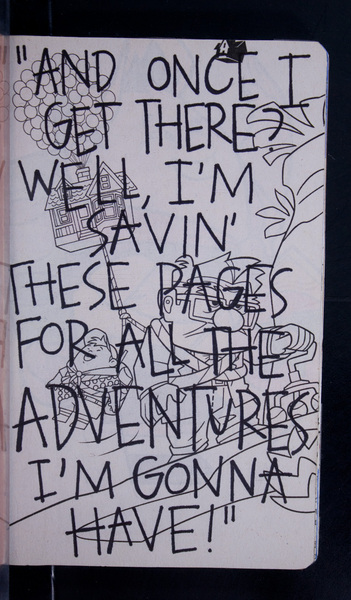 "AND ONCE I
GET THERE?
WELL, I'M
SAVIN'
THESE PAGES
FOR ALL THE
ADVENTURES
I'M GONNA
HAVE!"